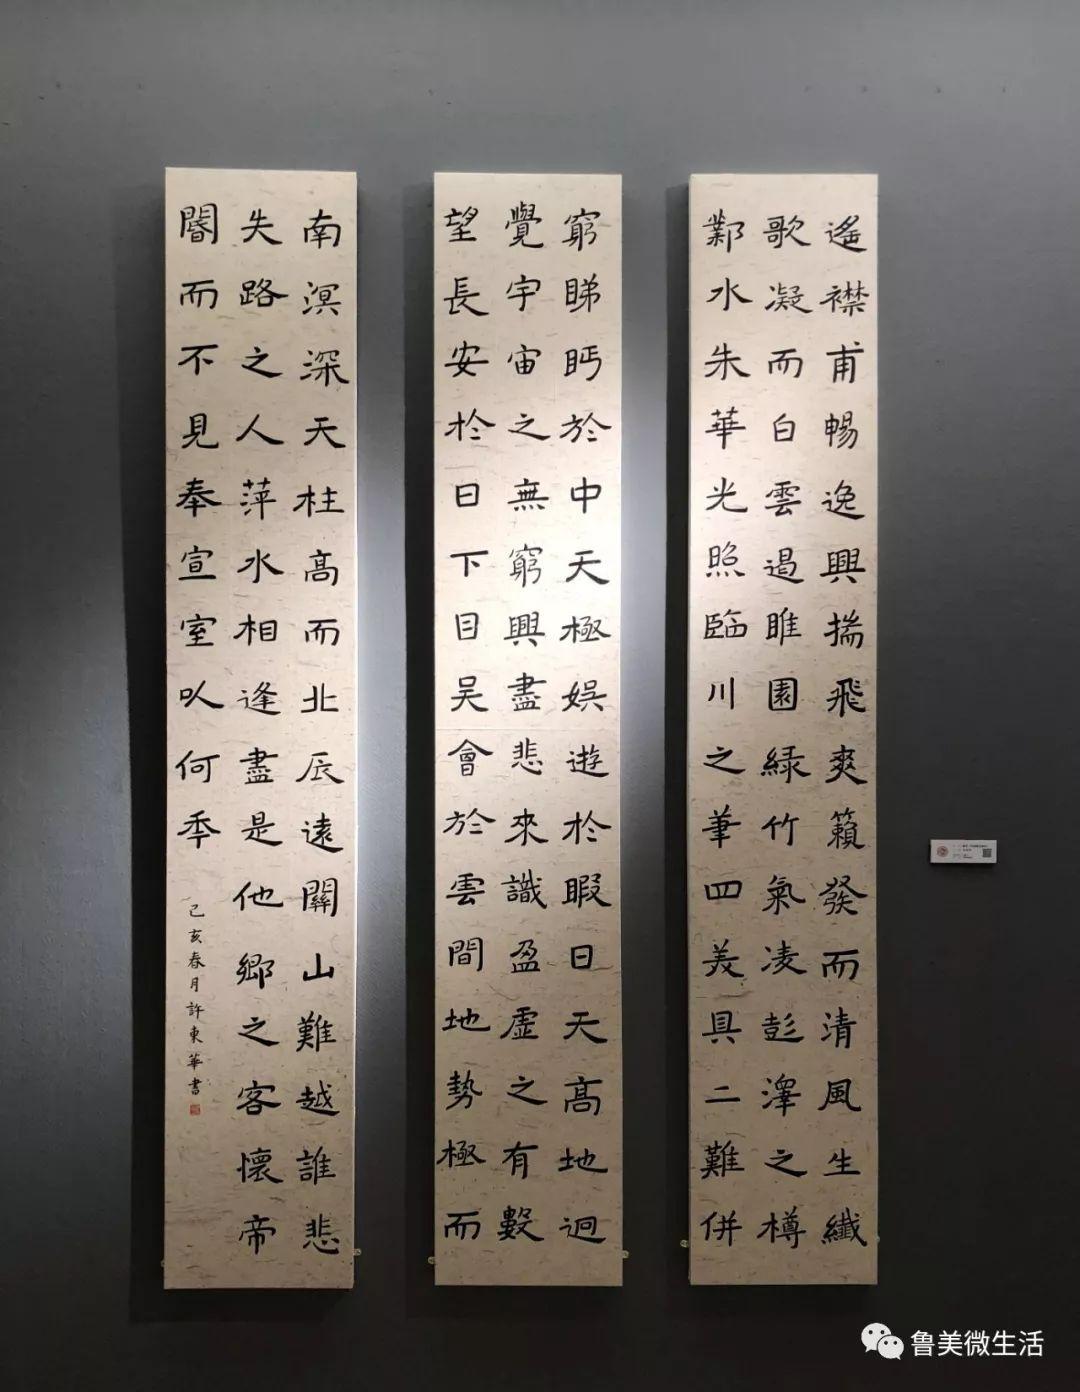 遙襟甫暢逸興揣飛爽籟發而清風生纖
歌凝而白雲遏睢園緑竹氣凌彭澤之樽
鄴水朱華光照臨川之筆四美具二難併
窮睇眄於中天極娯遊於暇日天高地迥
覺宇宙之無窮興盡悲來識盈虛之有數
望長安於日下目吴會於雲間地勢極而
南溟深天柱高而北辰遠關山難越誰悲
失路之人萍水相逢盡是他鄉之客懷帝
閽而不見奉宣室以何季
己亥春月許東華書
鲁美微生活